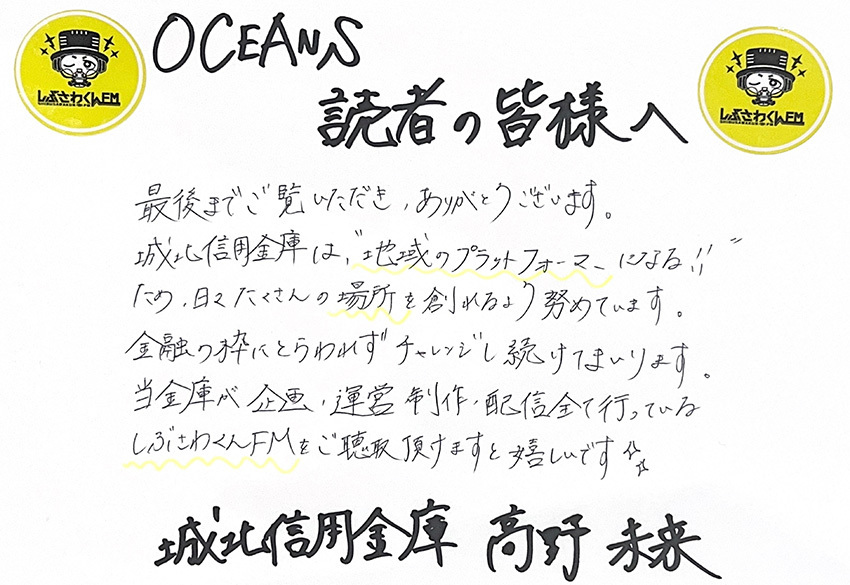 OCEANS
読者の皆様へ
しぶさわくんFM
しぶさわくんFM
最後までご覧いただき、ありがとうございます。
城北信用金庫は、"地域のプラットフォーマーになる!!"
ため、日々たくさんの場所を創れるよう努めています。
金融の枠にとらわれずチャレンジし続けてまいります。
当金庫が企画、運営、制作、配信全て行っている
しぶさわくんFMをご聴取頂けますと嬉しいです
城北信用金庫 高野 未来